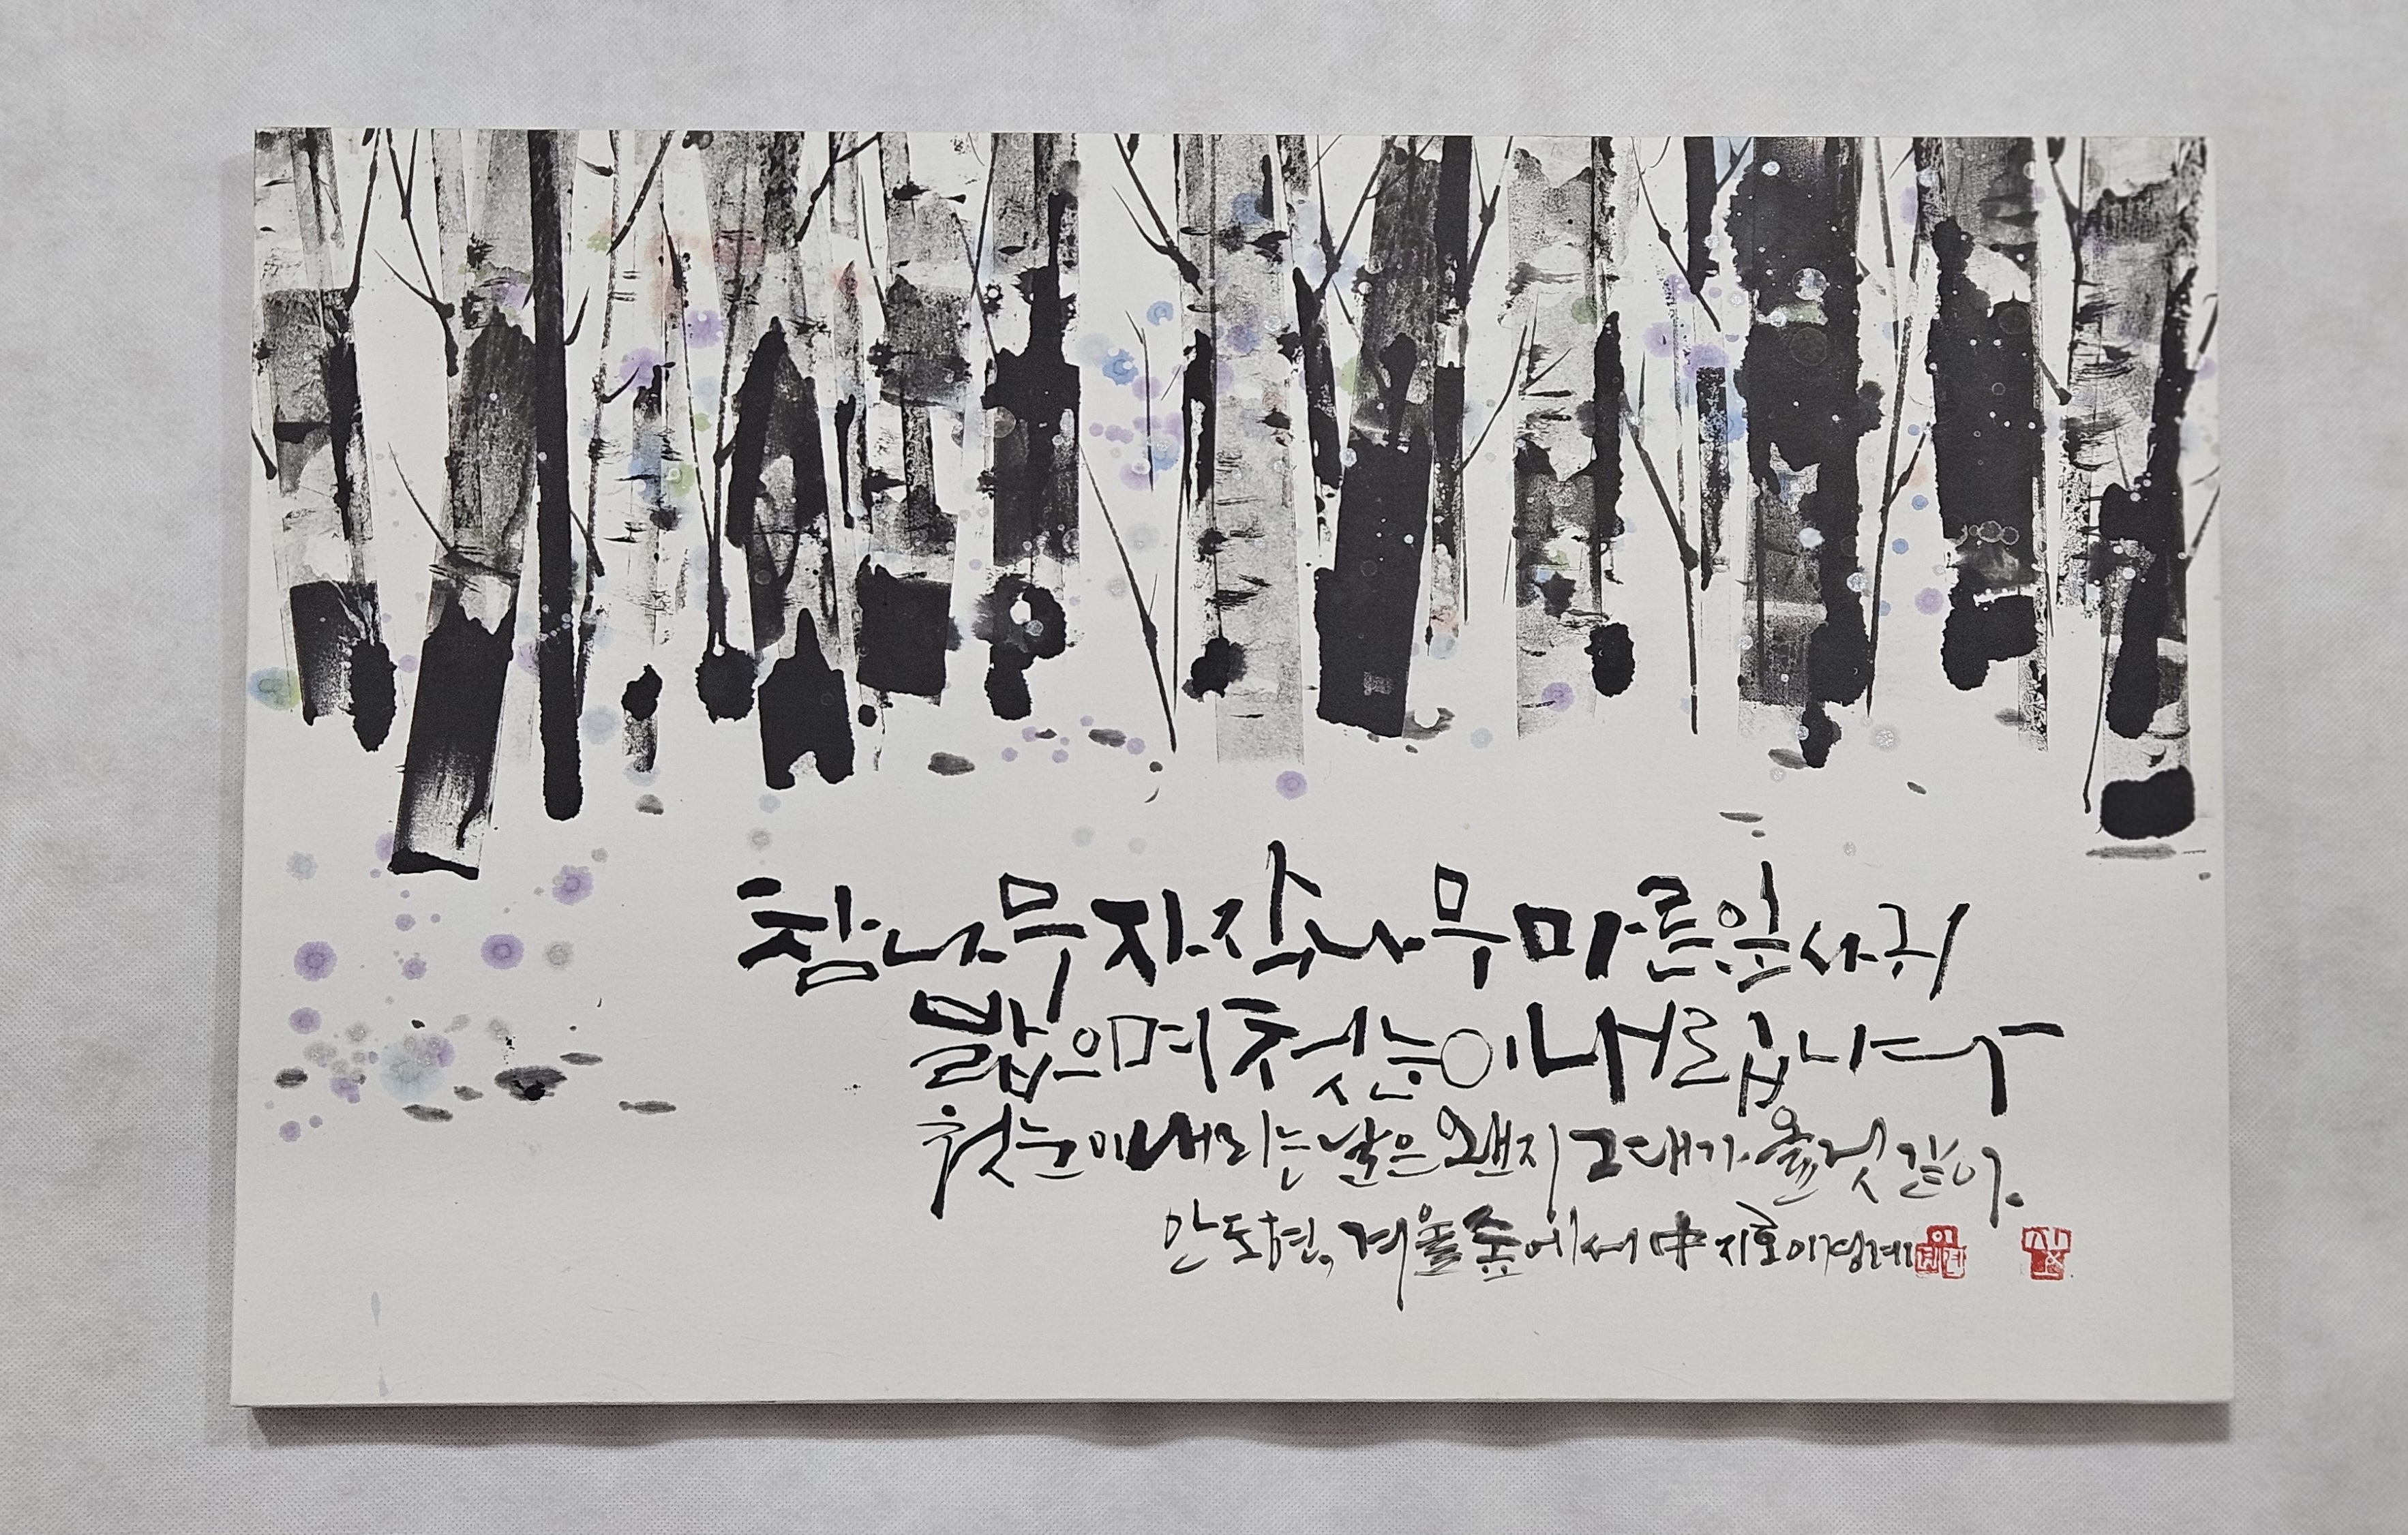 참나무 자작나무 마른 잎사귀
밟으며 첫눈이 내립니다
첫눈이 내리는 날은 왠지 그대가 올 것 같아
안도현, 겨울 숲에서 中 지호 이경례